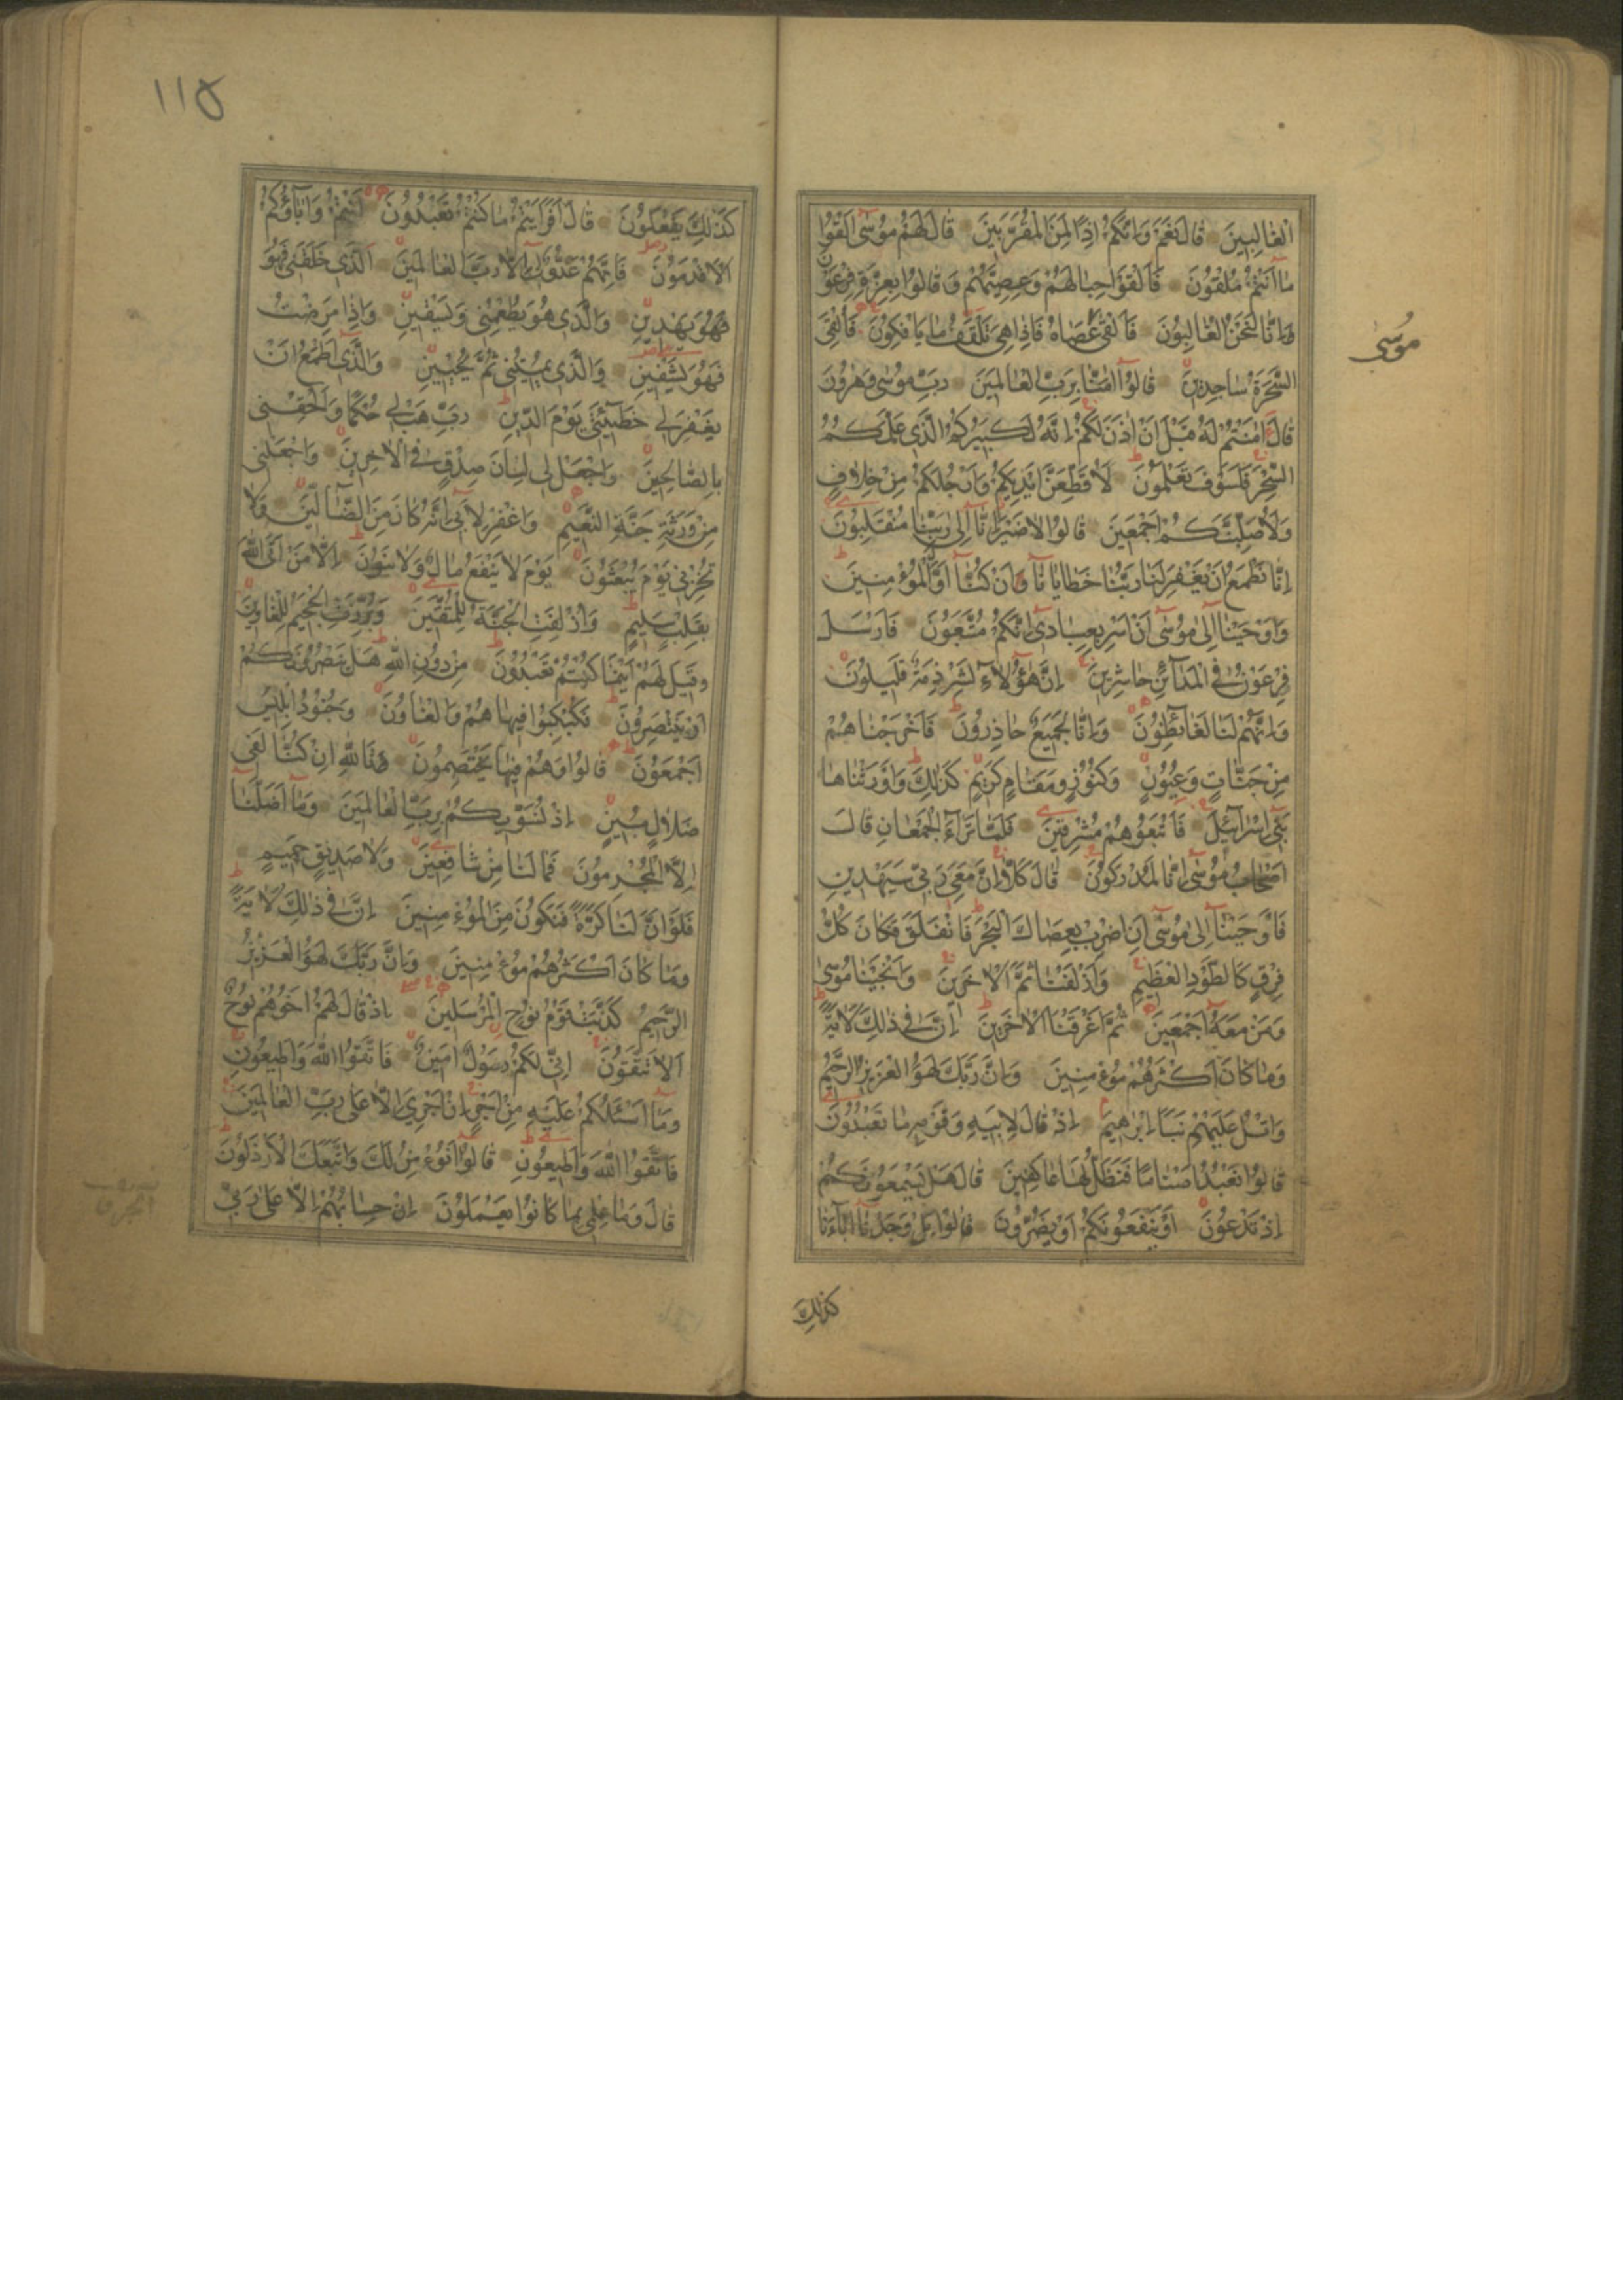 الْغَالِبِينَ قَالَ نَعَمْ وَاِنَّكُمْ اِذًا لَمِنَ الْمُقَرَّبِينَ قَالَ لَهُمْ مُوسٰٓى اَلْقُوا
مَٓا اَنْتُمْ مُلْقُونَ فَاَلْقَوْا حِبَالَهُمْ وَعِصِيَّهُمْ وَقَالُوا بِعِزَّةِ فِرْعَوْنَ
اِنَّا لَنَحْنُ الْغَالِبُونَ فَاَلْقٰى عَصَاهُ فَاِذَا هِىَ تَلْقَفُ مَا يَاْفِكُونَ فَاُلْقِىَ
السَّحَرَةُ سَاجِدِينَ قَالُٓوا اٰمَنَّا بِرَبِّ الْعَالَمِينَ رَبِّ مُوسٰى وَهٰرُونَ
قَالَ اٰمَنْتُمْ لَهُ قَبْلَ اَنْ اٰذَنَ لَكُمْ اِنَّهُ لَكَبِيرُكُمُ الَّذِى عَلَّمَكُمُ
السِّحْرَ فَلَسَوْفَ تَعْلَمُونَ لَاُقَطِّعَنَّ اَيْدِيَكُمْ وَاَرْجُلَكُمْ مِنْ خِلَافٍ
وَلَاُصَلِّبَنَّكُمْ اَجْمَعِينَ قَالُوا لَا ضَيْرَ اِنَّٓا اِلٰى رَبِّنَا مُنْقَلِبُونَ
اِنَّا نَطْمَعُ اَنْ يَغْفِرَ لَنَا رَبُّنَا خَطَايَانَٓا اَنْ كُنَّٓا اَوَّلَ الْمُؤْمِنِينَ
وَاَوْحَيْنَٓا اِلٰى مُوسٰٓى اَنْ اَسْرِ بِعِبَادِٓى اِنَّكُمْ مُتَّبَعُونَ فَاَرْسَلَ
فِرْعَوْنُ فِى الْمَدَٓائِنِ حَاشِرِينَ اِنَّ هٰٓؤُلَٓاءِ لَشِرْذِمَةٌ قَلِيلُونَ
وَاِنَّهُمْ لَنَا لَغَٓائِظُونَ وَاِنَّا لَجَمِيعٌ حَاذِرُونَ فَاَخْرَجْنَاهُمْ
مِنْ جَنَّاتٍ وَعُيُونٍ وَكُنُوزٍ وَمَقَامٍ كَرِيمٍ كَذٰلِكَ وَاَوْرَثْنَاهَا
بَنِٓى اِسْرَٓائِلَ فَاَتْبَعُوهُمْ مُشْرِقِينَ فَلَمَّا تَرَٓاءَ الْجَمْعَانِ قَالَ
اَصْحَابُ مُوسٰٓى اِنَّا لَمُدْرَكُونَ قَالَ كَلَّا اِنَّ مَعِىَ رَبِّى سَيَهْدِينِ
فَاَوْحَيْنَٓا اِلٰى مُوسٰٓى اَنِ اضْرِبْ بِعَصَاكَ الْبَحْرَ فَانْفَلَقَ فَكَانَ كُلُّ
فِرْقٍ كَالطَّوْدِ الْعَظِيمِ وَاَزْلَفْنَا ثَمَّ الْاٰخَرِينَ وَاَنْجَيْنَا مُوسٰى
وَمَنْ مَعَهُٓ اَجْمَعِينَ ثُمَّ اَغْرَقْنَا الْاٰخَرِينَ اِنَّ فِى ذٰلِكَ لَاٰيَةً
وَمَا كَانَ اَكْثَرُهُمْ مُؤْمِنِينَ وَاِنَّ رَبَّكَ لَهُوَ الْعَزِيزُ الرَّحِيمُ
وَاتْلُ عَلَيْهِمْ نَبَاَ اِبْرٰهِيمَ اِذْ قَالَ لِاَبِيهِ وَقَوْمِهِ مَا تَعْبُدُونَ
قَالُوا نَعْبُدُ اَصْنَامًا فَنَظَلُّ لَهَا عَاكِفِينَ قَالَ هَلْ يَسْمَعُونَكُمْ
اِذْ تَدْعُونَ اَوْ يَنْفَعُونَكُمْ اَوْ يَضُرُّونَ قَالُوا بَلْ وَجَدْنَٓا اٰبَٓاءَنَا
كذلك
موسى
١١٥
كَذٰلِكَ يَفْعَلُونَ قَالَ اَفَرَاَيْتُمْ مَا كُنْتُمْ تَعْبُدُونَ اَنْتُمْ وَاٰبَٓاؤُكُمُ
الْاَقْدَمُونَ فَاِنَّهُمْ عَدُوٌّ لِٓى اِلَّا رَبَّ الْعَالَمِينَ اَلَّذِى خَلَقَنِى فَهُوَ
فَهُوَ يَهْدِينِ وَالَّذِى هُوَ يُطْعِمُنِى وَيَسْقِينِ وَاِذَا مَرِضْتُ
فَهُوَ يَشْفِينِ وَالَّذِى يُمِيتُنِى ثُمَّ يُحْيِينِ وَالَّذِٓى اَطْمَعُ اَنْ
يَغْفِرَ لِى خَطِٓيئَتِى يَوْمَ الدِّينِ رَبِّ هَبْ لِى حُكْمًا وَاَلْحِقْنِى
بِالصَّالِحِينَ وَاجْعَلْ لِى لِسَانَ صِدْقٍ فِى الْاٰخِرِينَ وَاجْعَلْنِى
مِنْ وَرَثَةِ جَنَّةِ النَّعِيمِ وَاغْفِرْ لِاَبِٓى اِنَّهُ كَانَ مِنَ الضَّٓالِّينَ وَلَا
تُخْزِنِى يَوْمَ يُبْعَثُونَ يَوْمَ لَا يَنْفَعُ مَالٌ وَلَا بَنُونَ اِلَّا مَنْ اَتَى اللّٰهَ
بِقَلْبٍ سَلِيمٍ وَاُزْلِفَتِ الْجَنَّةُ لِلْمُتَّقِينَ وَبُرِّزَتِ الْجَحِيمُ لِلْغَاوِينَ
وَقِيلَ لَهُمْ اَيْنَمَا كُنْتُمْ تَعْبُدُونَ مِنْ دُونِ اللّٰهِ هَلْ يَنْصُرُونَكُمْ
اَوْ يَنْتَصِرُونَ فَكُبْكِبُوا فِيهَا هُمْ وَالْغَاوُنَ وَجُنُودُ اِبْلِيسَ
اَجْمَعُونَ قَالُوا وَهُمْ فِيهَا يَخْتَصِمُونَ تَاللّٰهِ اِنْ كُنَّا لَفِى
ضَلَالٍ مُبِينٍ اِذْ نُسَوِّيكُمْ بِرَبِّ الْعَالَمِينَ وَمَٓا اَضَلَّنَٓا
اِلَّا الْمُجْرِمُونَ فَمَا لَنَا مِنْ شَافِعِينَ وَلَا صَدِيقٍ حَمِيمٍ
فَلَوْ اَنَّ لَنَا كَرَّةً فَنَكُونَ مِنَ الْمُؤْمِنِينَ اِنَّ فِى ذٰلِكَ لَاٰيَةً
وَمَا كَانَ اَكْثَرُهُمْ مُؤْمِنِينَ وَاِنَّ رَبَّكَ لَهُوَ الْعَزِيزُ
الرَّحِيمُ كَذَّبَتْ قَوْمُ نُوحٍ الْمُرْسَلِينَ اِذْ قَالَ لَهُمْ اَخُوهُمْ نُوحٌ
اَلَا تَتَّقُونَ اِنِّى لَكُمْ رَسُولٌ اَمِينٌ فَاتَّقُوا اللّٰهَ وَاَطِيعُونِ
وَمَٓا اَسْئَلُكُمْ عَلَيْهِ مِنْ اَجْرٍ اِنْ اَجْرِىَ اِلَّا عَلٰى رَبِّ الْعَالَمِينَ
فَاتَّقُوا اللّٰهَ وَاَطِيعُونِ قَالُٓوا اَنُؤْمِنُ لَكَ وَاتَّبَعَكَ الْاَرْذَلُونَ
قَالَ وَمَا عِلْمِى بِمَا كَانُوا يَعْمَلُونَ اِنْ حِسَابُهُمْ اِلَّا عَلٰى رَبِّى